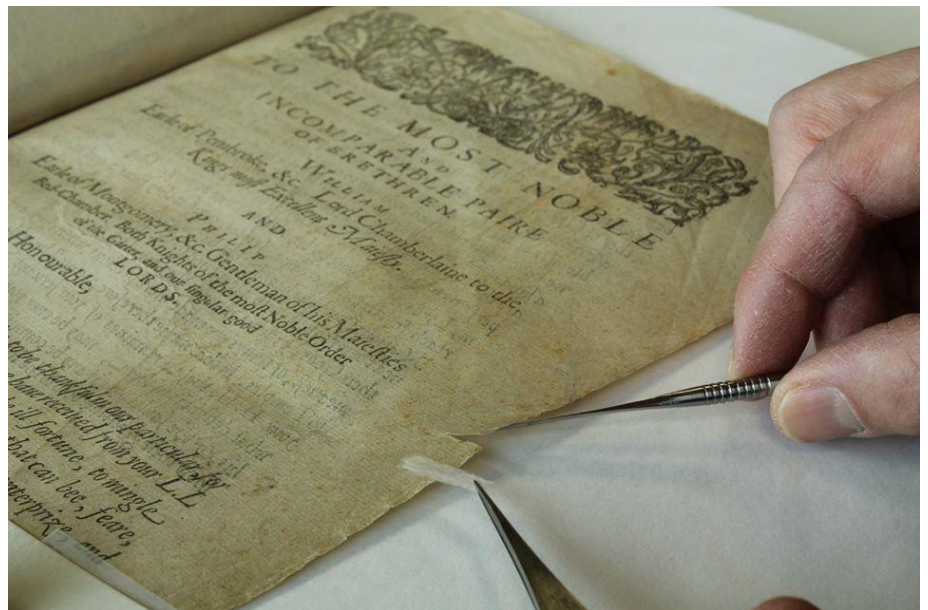 TO THE MOST NOBLE
AND
INCOMPARABLE PAIRE
OF BRETHREN
WILLIAM
Earle of Pembroke, &c. Lord Chamberlaine to the
Kings moſt Excellent Maieſty.
AND
PHILIP
Earle of Montgomery, &c. Gentleman of his Maieſties
Bed-Chamber. Both Knights of the moſt Noble Order
of the Garter, and our ſingular good
LORDS.
Honourable,
to be thankful in our particular, for
haue receiued from your L.L
ill fortune, to mingle
that can bee, feare,
and